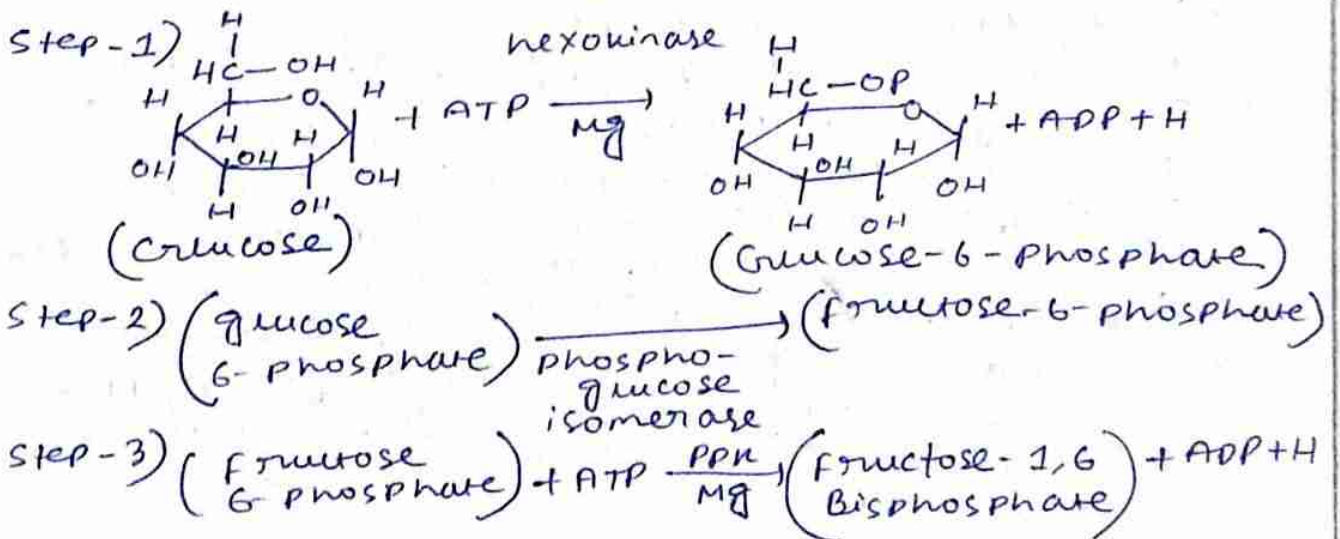 Step-1)
H
HC-OH
H O H
H H
OH OH OH
H OH
+ ATP
hexokinase
Mg
H
HC-OP
H O H
H H
OH OH OH
H OH
+ ADP + H
(Glucose)
(Glucose-6-Phosphate)
Step-2) (glucose
6-phosphate)
phospho-
glucose
isomerase
(fructose-6-phosphate)
Step-3) (Fructose
6-phosphate) + ATP
PPK
Mg
(Fructose-1,6
Bisphosphate) + ADP + H